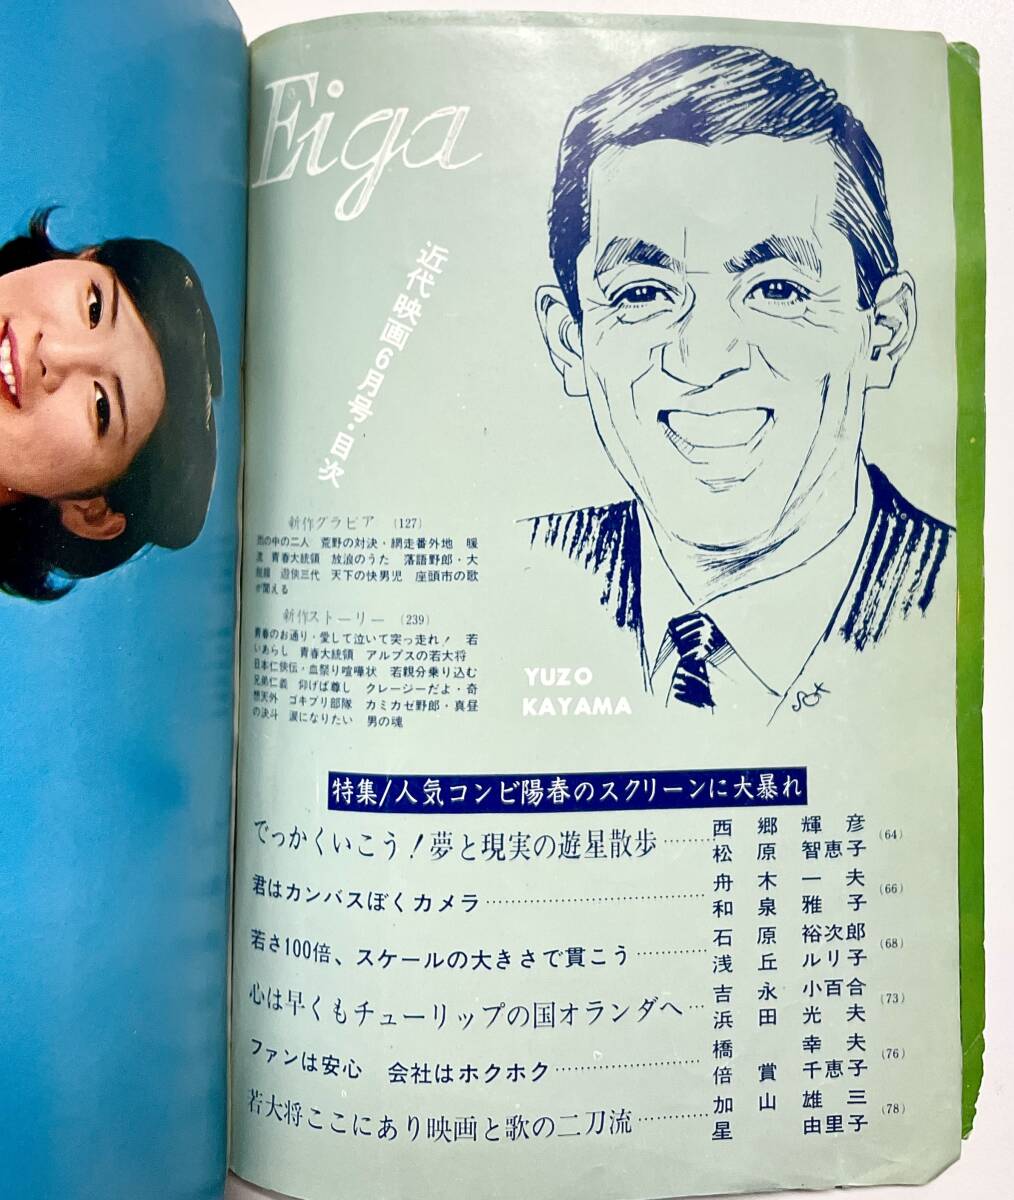 Eiga
近代映画6月号・目次
新作グラビア (127)
の中の二人 荒野の対決・網走番外地 暖
流 青春大統領 放浪のうた 落語野郎・大
遊侠三代 天下の快男児 座頭市の歌
が聞える
新作ストーリー (239)
青春のお通り・愛して泣いて突っ走れ! 若
いあらし 青春大統領 アルプスの若大将
日本仁侠伝・血祭り喧嘩状 若親分乗り込む
兄弟仁義 仰げば尊し クレージーだよ・奇
想天外 ゴキブリ部隊 カミカゼ野郎・真昼
の決斗 涙になりたい 男の魂
YUZO
KAYAMA
特集/人気コンビ陽春のスクリーンに大暴れ
でっかくいこう!夢と現実の遊星散歩……… 西郷輝彦 松原智恵子 (64)
君はカンバスぼくカメラ……………………… 舟木一夫 和泉雅子 (66)
若さ100倍、スケールの大きさで貫こう……… 石原裕次郎 浅丘ルリ子 (68)
心は早くもチューリップの国オランダへ… 吉永小百合 浜田光夫 (73)
ファンは安心 会社はホクホク……………… 橋幸夫 倍賞千恵子 (76)
若大将ここにあり映画と歌の二刀流……… 加山雄三 星由里子 (78)